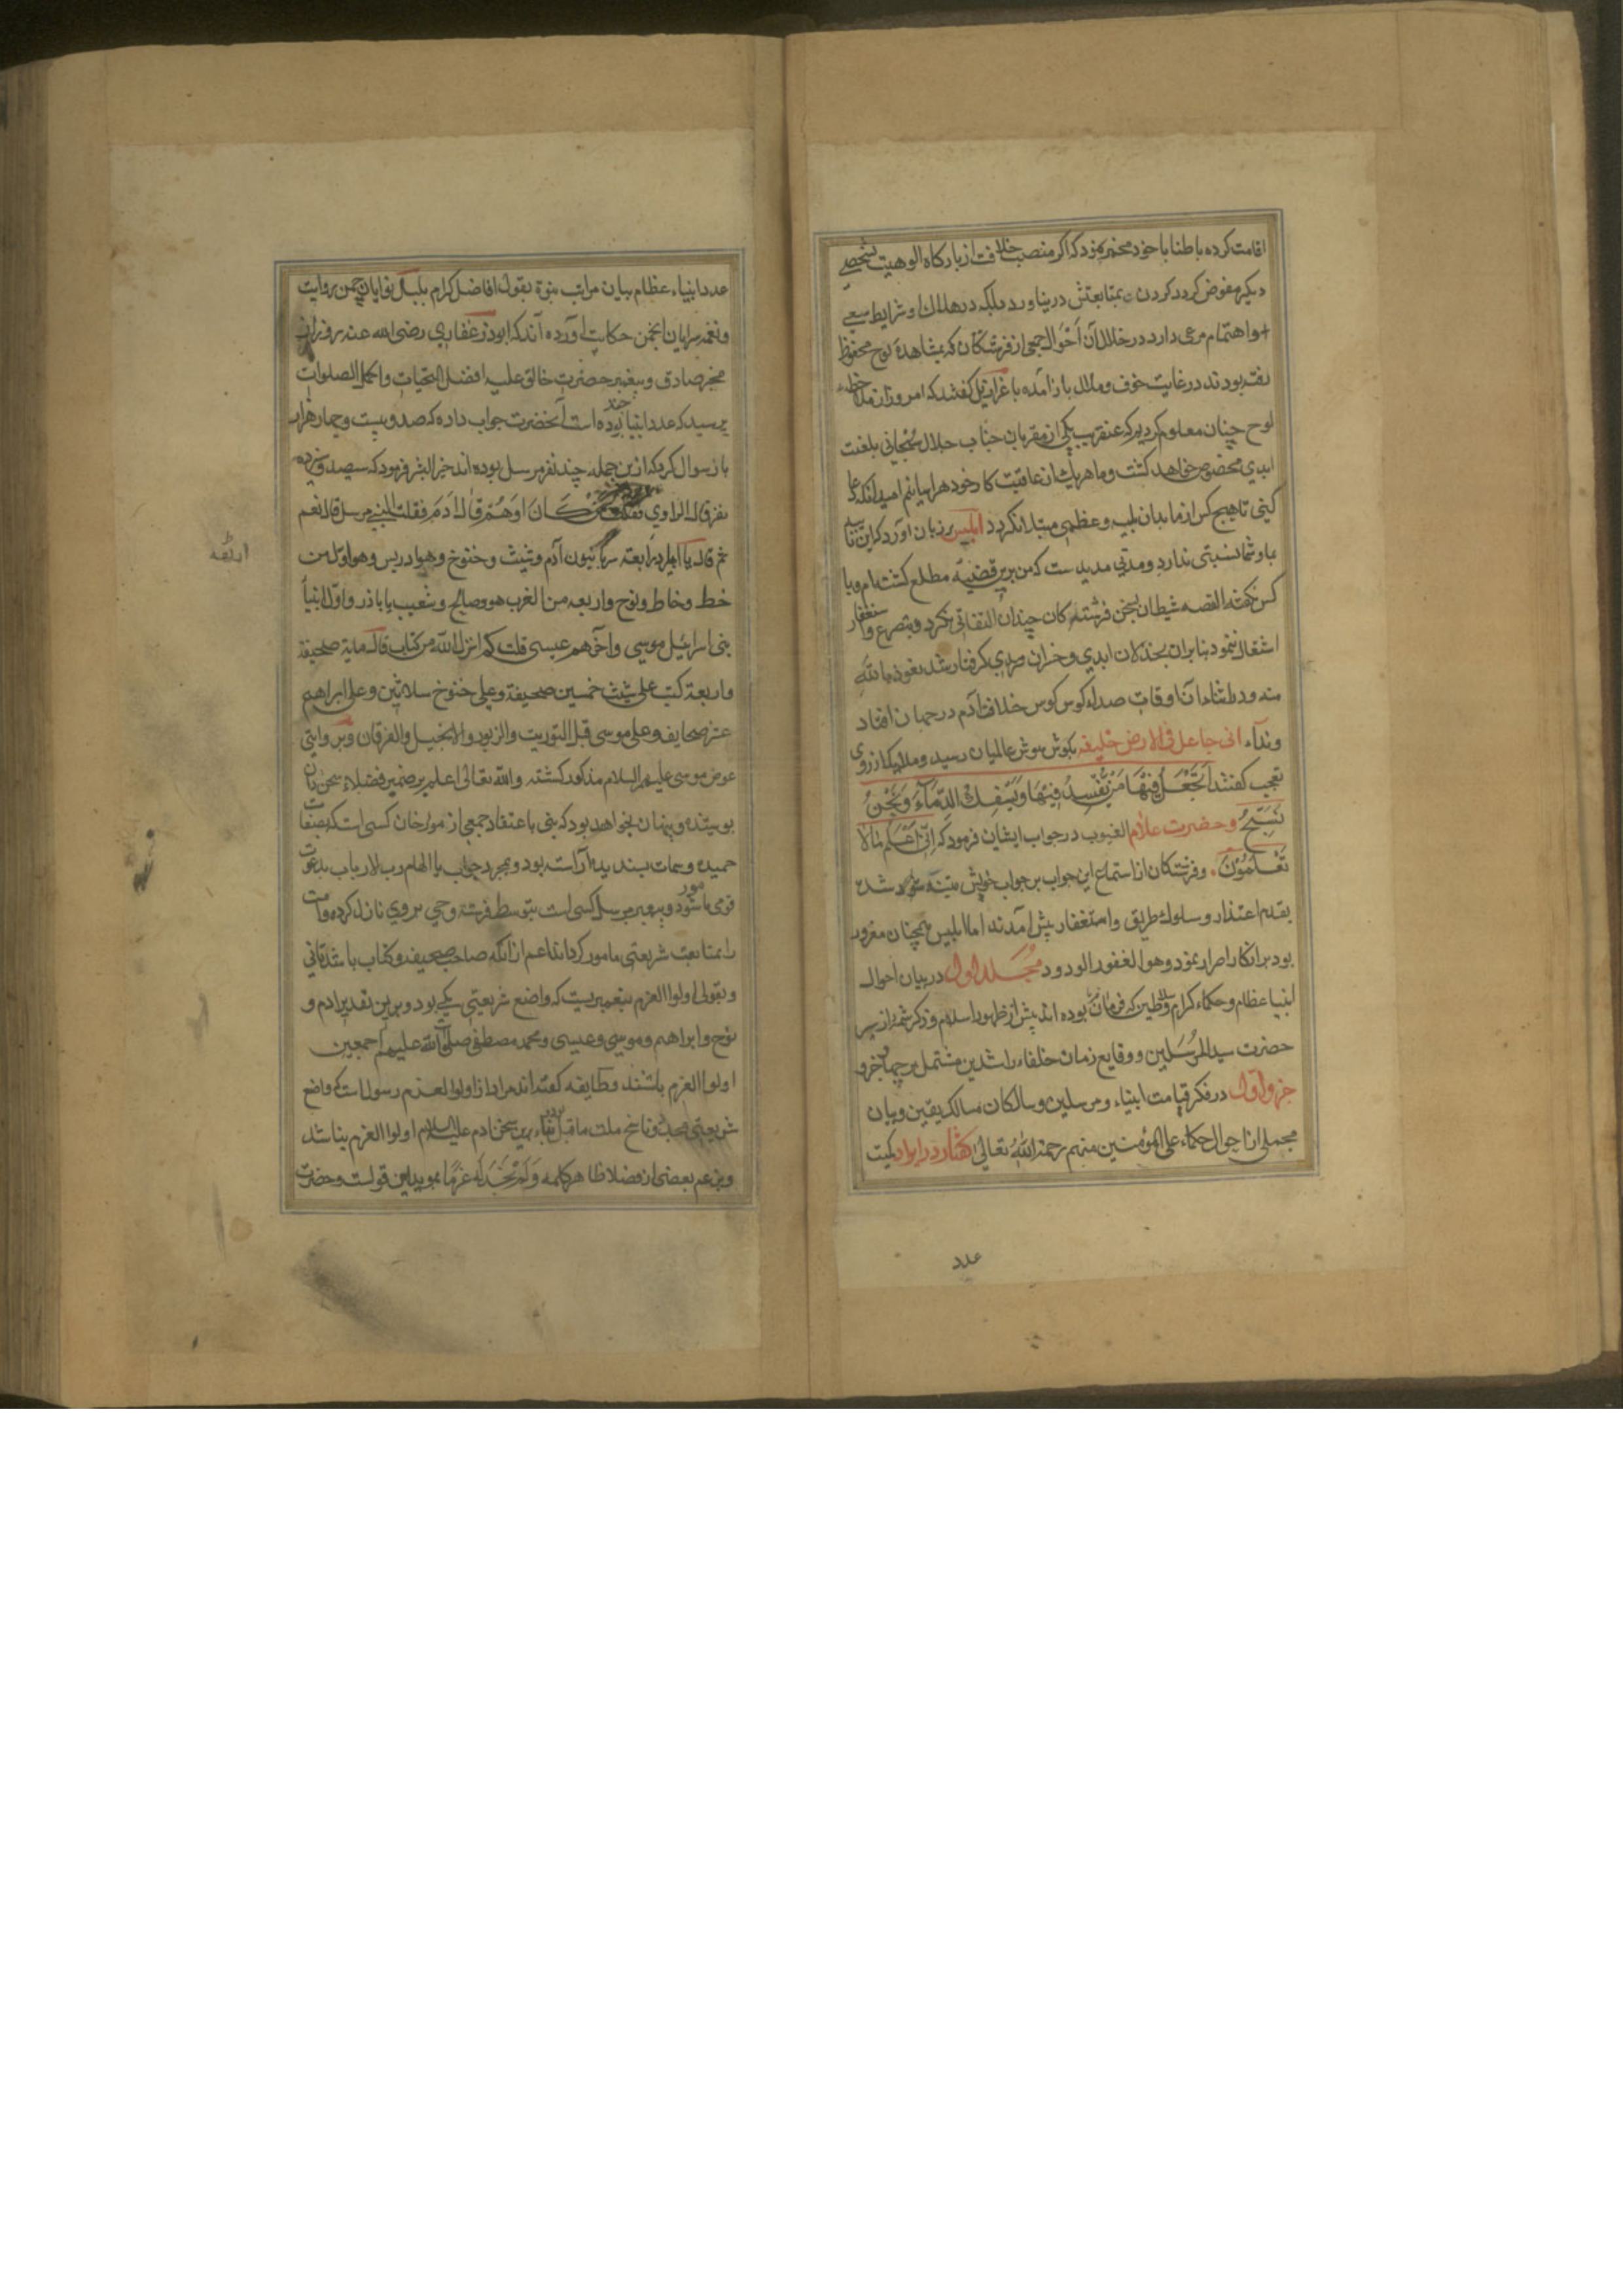 اقامت کرده باطنا با خود مخمر نمود که اکر منصب خلافت از بارکاه الوهیت بشخصی
دیکر مفوض کردد کردن بمتابعتش در نیاورد بلکه در هلاک او شرایط سعی
واهتمام مرعی دارد در خلال آن احوال جمعی از فرشتکان که بمشاهده لوح محفوظ
رفته بودند در غایت خوف و ملال باز آمده با عزازیل کفتند که امروز از ملاحظه
لوح چنان معلوم کردید که عنقریب یکی از مقربان جناب جلال سبحانی بلعنت
ابدی مخصوص خواهد کشت و ما هریک از عاقبت کار خود هراسانیم امید آنکه دعا
کنی تا هیچ کس از ما بدان بلیه عظمی مبتلا نکردد ابلیس بر زبان آورد که این
بما و شما نسبتی ندارد و مدتی مدیدست که من برین قضیه مطلع کشته ام و با
کس نکفته القصه شیطان بسخن فرشته کان چندان التفاتی نکرد و بتضرع و استغفار
اشتغال ننمود بنابران بخذلان ابدی و خسران سرمدی کرفتار شد نعوذ بالله
منه و در اثناء آن اوقات صداء کوس خلافت آدم در جهان افتاد
ونداء انی جاعل فی الارض خلیفه بکوش هوش عالمیان رسید و ملایکه از روی
تعجب کفتند اَتَجْعَلُ فِیْهَا مَنْ یُّفْسِدُ فِیْهَا وَیَسْفِکُ الدِّمَآءَ وَنَحْنُ
نُسَبِّحُ وحضرت علام الغیوب در جواب ایشان فرمود که اِنِّیْ اَعْلَمُ مَالَا
تَعْلَمُوْنَ. وفرشتکان از استماع این جواب بر جواب خویش متنبه شده
بقدم اعتذار وسلوک طریق واستغفار پیش آمدند اما ابلیس همچنان مغرور
بود بر انکار اصرار نمود وهو الغفور الودود مجلد اول در بیان احوال
انبیا عظام وحکماء کرام وسلاطین که بوده اند پیش از ظهور اسلام وذکر شمه از سیر
حضرت سید المرسلین و وقایع زمان خلفاء راشدین مشتمل بر چهار جزو
جزو اول در فکر قیامت انبیاء و مرسلین و سالکان مسالک یقین و بیان
مجملی از احوال حکماء علی المؤمنین منهم رحمة الله تعالی کفتار در ایراد کمیت
عدد
عدد انبیاء عظام بیان مراتب نبوة بقول افاضل کرام بلبل نوایان چمن روایت
ونغمه سرایان انجمن حکایت آورده اند که ابوذر غفاری رضی الله عنه روزی از
مخبر صادق و پیغمبر حضرت خالق علیه افضل التحیات واکمل الصلوات
پرسید که عدد انبیا چند بوده است آنحضرت جواب داده که صد و بیست و چهار هزار
باز سوال کرد که ازین جمله چند نفر مرسل بوده اند خیر البشر فرمود که سیصد و سیزده
نفر قال الراوی فقلت من کَانَ اَوَّهُمْ قَالَ اٰدَمَ فقلت النبی مرسل قال نعم
ثم قال یا اباذر اربعة سریانیون آدم وشیث وخنوخ وهو ادریس وهو اول من
اربعة
خط وخاط ونوح واربعه من الغرب هود وصالح وشعیب یا باذر واول انبیا
بنی اسرائیل موسی واخرهم عیسی قلت کم انزل الله من کتاب قال مایة صحیفة
واربعة کتب علی شیث خمسین صحیفة وعلی خنوخ ثلاثین وعلی ابراهیم
عشر صحایف وعلی موسی قبل التوریت والزبور والانجیل والفرقان وبر وایتی
عوض موسی علیهم السلام مذکور کشته والله تعالی اعلم بر ضمیر فضلاء سخن دان
پوشیده و پنهان نخواهد بود که نبی باعتقاد جمعی از مورخان کسی است که بصفات
حمیده وسمات پسندیده آراسته بود وبمجرد جواب یا الهام رب الارباب بدعوت
قومی مامور شود و پیغمبر مرسل کسی است بتوسط فرشته وحی بر وی نازل کرده وامت
را بمتابعت شریعتی مامور کرداند اعم از انکه صاحب صحیفه وکتاب باشد یانی
وبقولی اولوا العزم پیغمبریست که واضع شریعتی یکی بود وبرین تقدیر ادم و
نوح وابراهیم وموسی وعیسی ومحمد مصطفی صلوات الله علیهم اجمعین
اولوا العزم باشند وطایفه کفته اند مراد از اولوا العزم رسول است که واضع
شریعتی مجدد وناسخ ملت ماقبل بناء برین سخن ادم علیه السلام اولوا العزم نباشد
وبزعم بعضی از فضلا ظاهر کلمه وَلَمْ نَجِدْ لَهُ عَزْمًا موید این قولست وحضرت